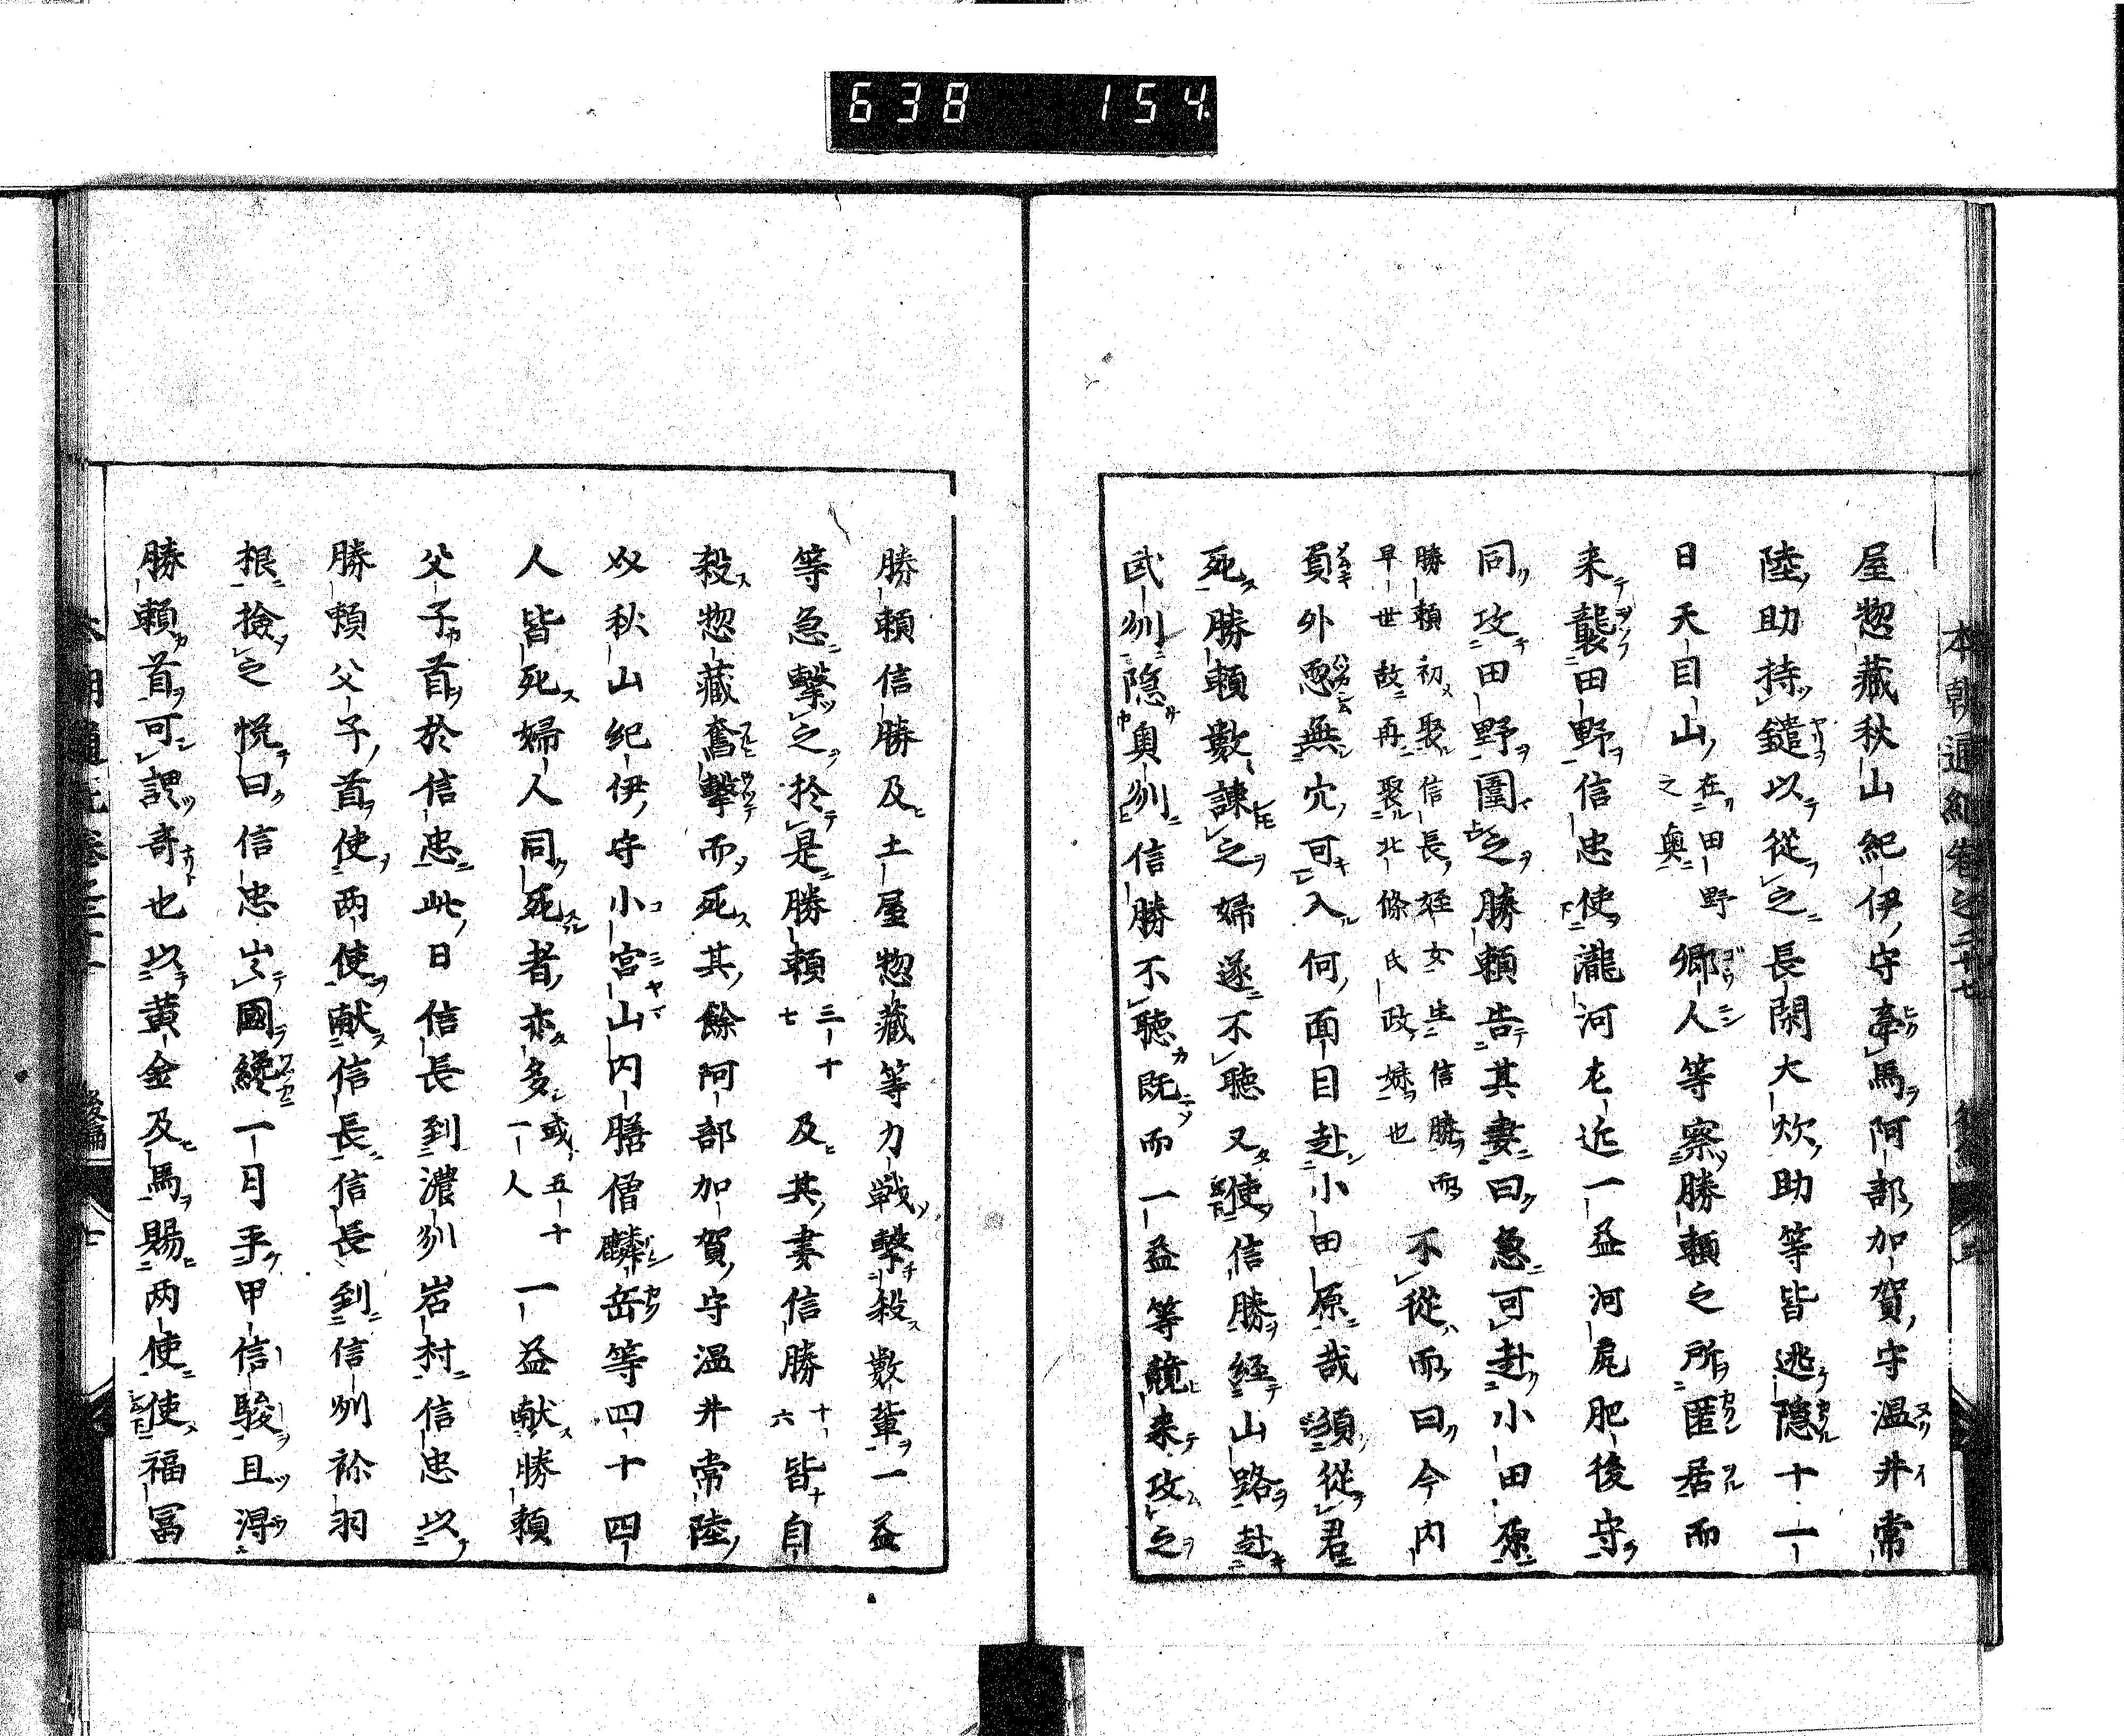 638 154
本朝通紀卷之二十七
屋惣藏秋山紀伊守牽馬阿部加賀守温井常
陸助持鑓以從之長閑大炊助等皆逃隱十一
日天目山在田野之奥郷人等察勝頼之所匿居而
来襲田野信忠使瀧河左近一益河尻肥後守
同攻田野圍之勝頼告其妻曰急可赴小田原
勝頼初娶信長姪女生信勝而
早世故再娶北條氏政妹也
不從而曰今内
負外恧無穴可入何面目赴小田原哉須從君
死勝頼數諌之婦遂不聽又使信勝経山路赴
武州隠奥州信勝不聽既而一益等競来攻之
勝頼信勝及土屋惣藏等力戦擊殺數輩一益
等急擊之於是勝頼三十七及其妻信勝十六皆自
殺惣藏奮擊而死其餘阿部加賀守温井常陸
奴秋山紀伊守小宮山内膳僧麟岳等四十四
人皆死婦人同死者亦多或五十一人一益献勝頼
父子首於信忠此日信長到濃州岩村信忠以
勝頼父子首使両使献信長信長到信州祢羽
根撿之悦曰信忠出國纔一月平甲信駿且得
勝頼首可謂奇也以黄金及馬賜两使使福冨